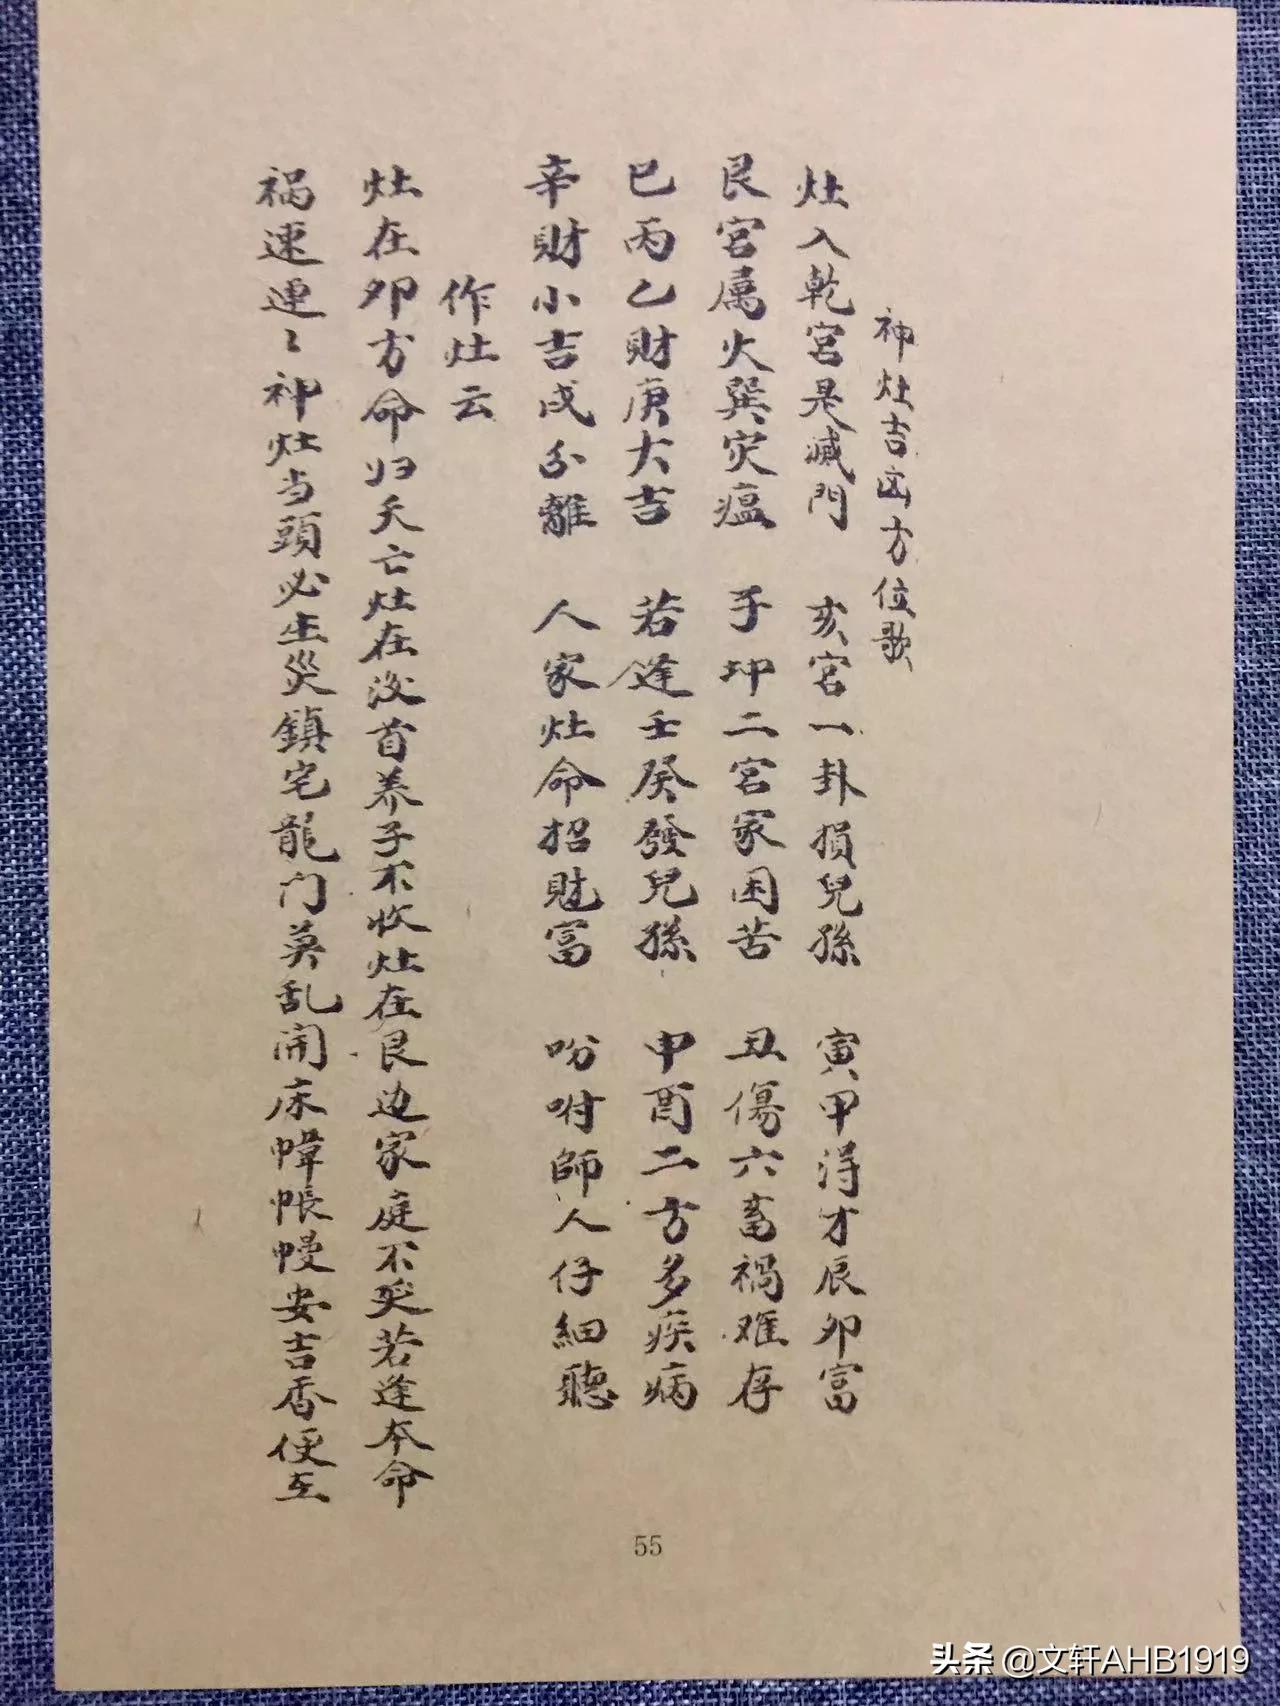 神灶吉凶方位歌
灶入乾宮是滅門 亥宮一卦損兒孫 寅甲得才辰卯富
艮宮属火巽灾瘟 子坤二宮家困苦 丑傷六畜祸难存
巳丙乙財庚大吉 若逢壬癸發兒孫 申酉二方多疾病
辛財小吉戌分離 人家灶命招財富 吩咐師人仔細聽
作灶云
灶在卯方命归夭亡灶在没首养子不收灶在艮边家庭不癸若逢本命
祸速連〻神灶当頭必生災鎮宅龍门莫乱開床幃帐幔安吉香便至
55
头条 @文轩AHB1919